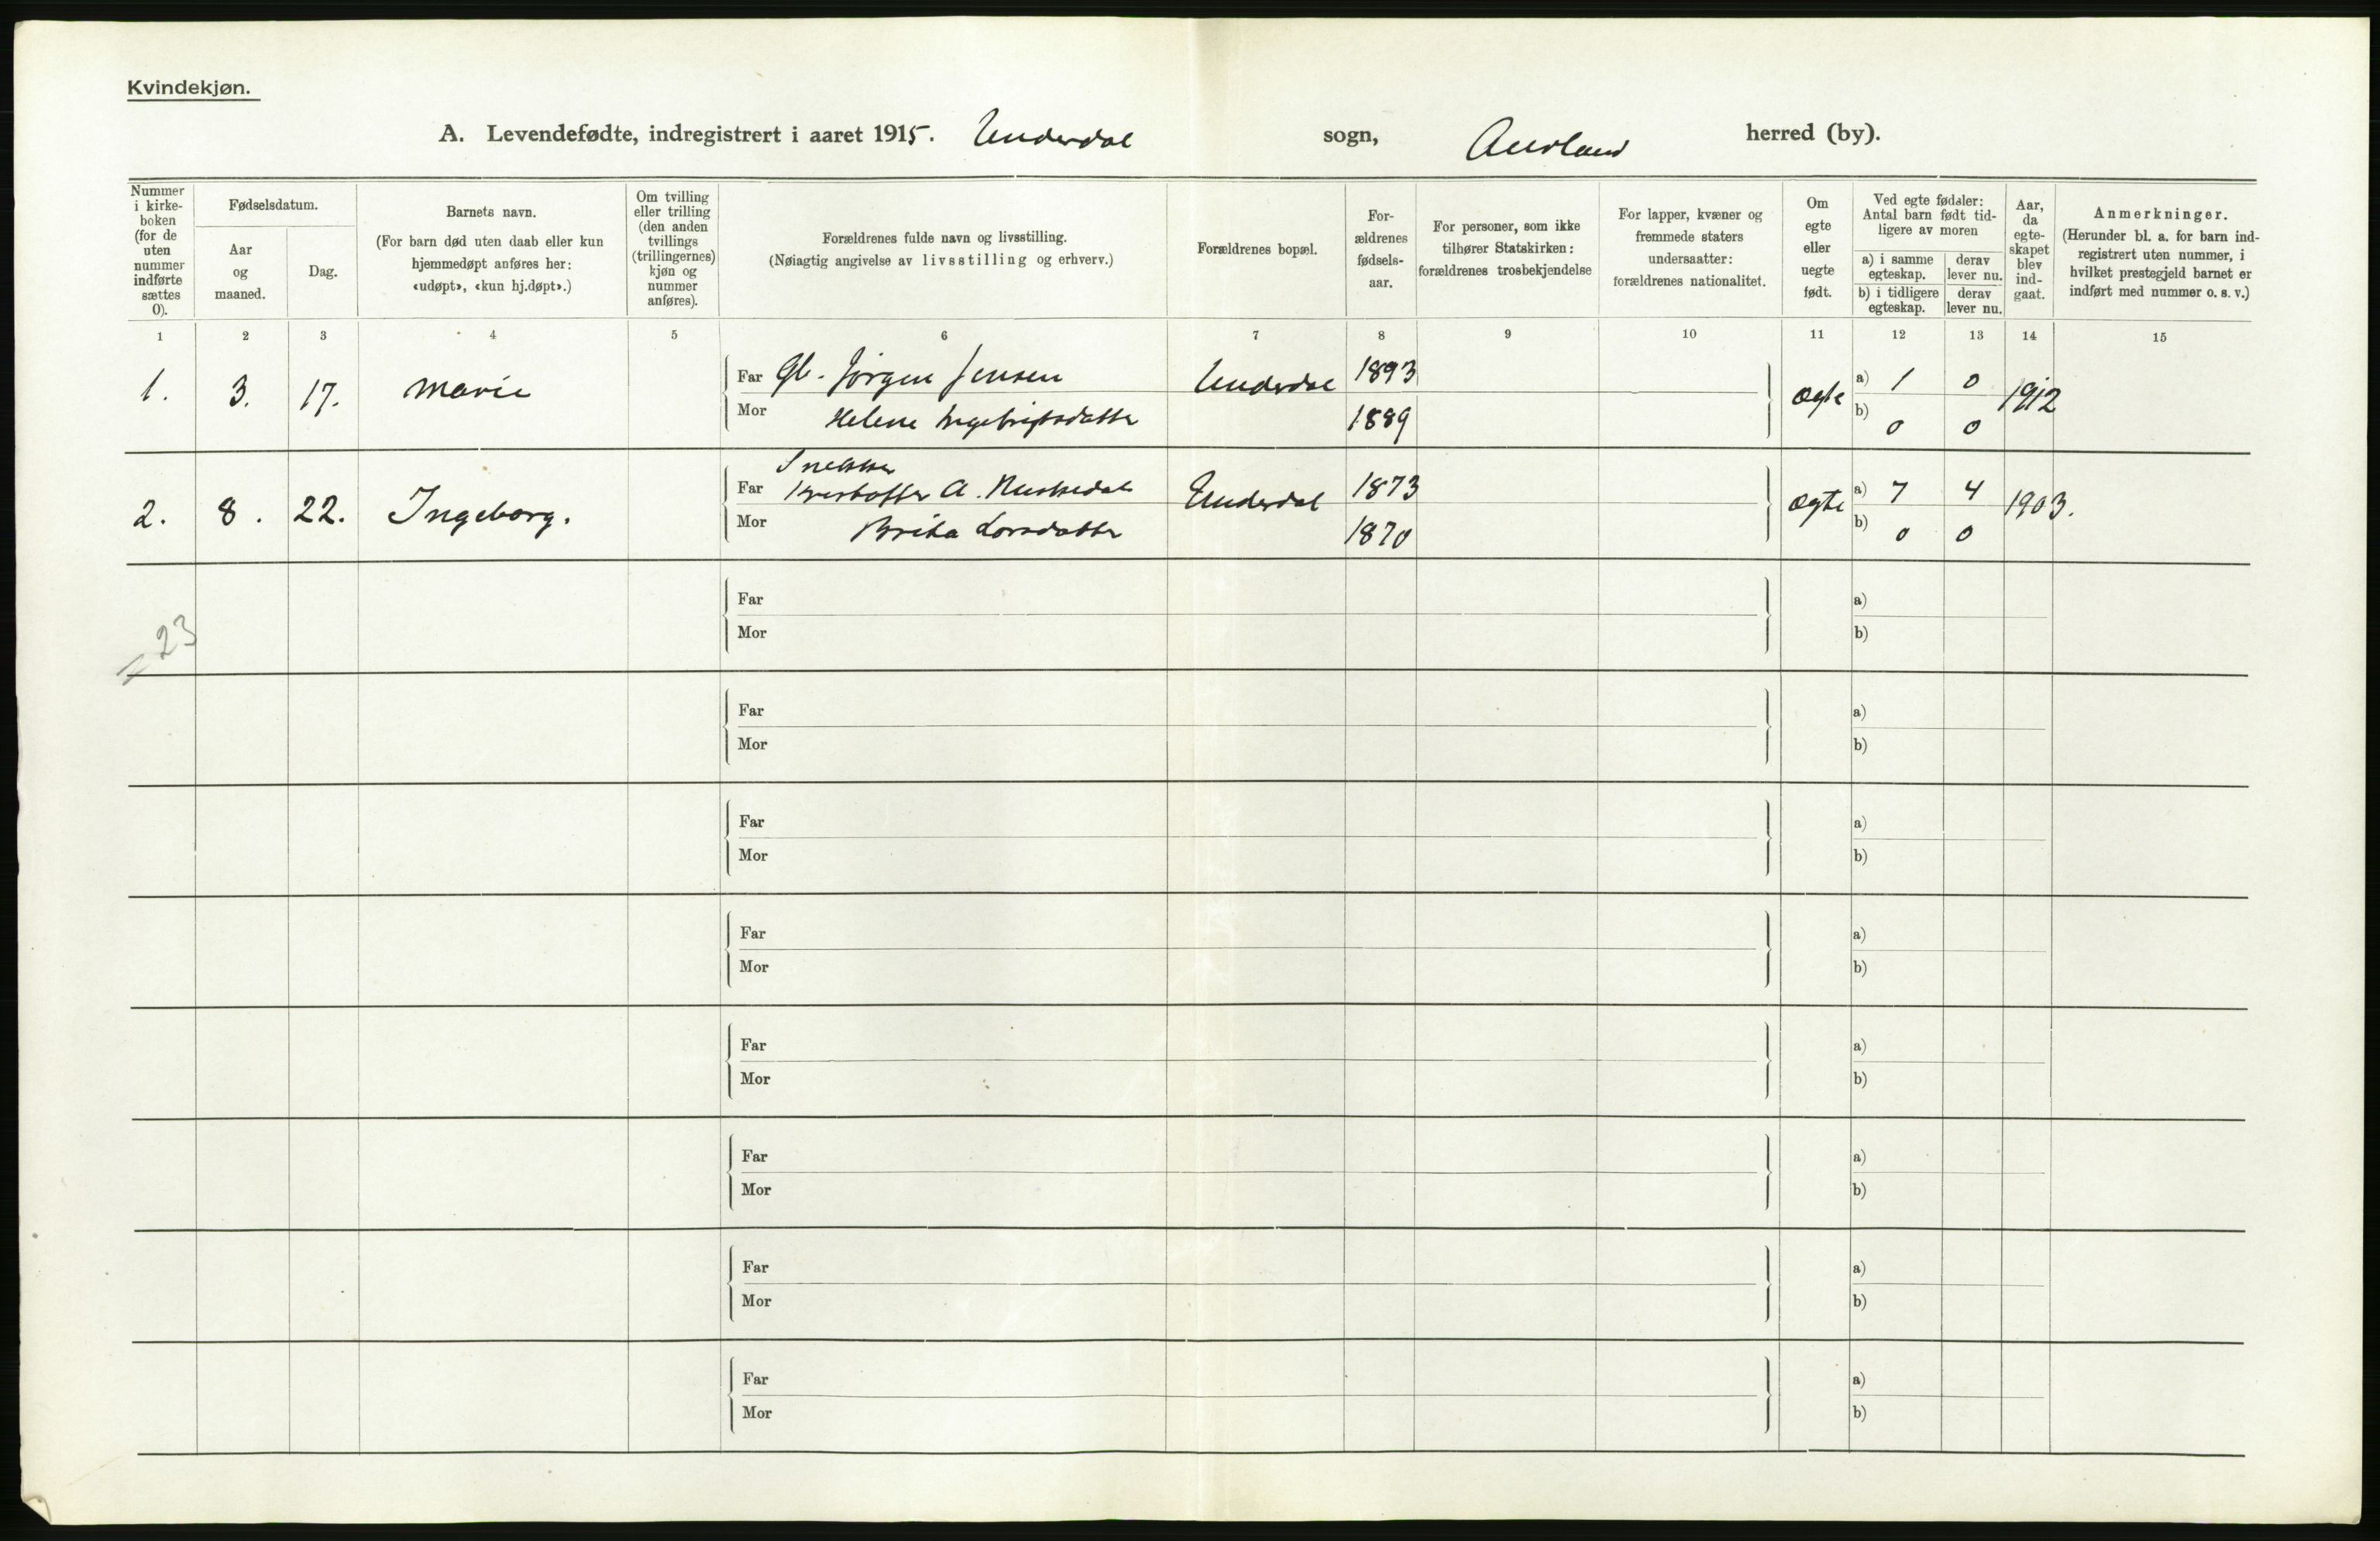 Kvindekjøn.
A. Levendefødte, indregistrert i aaret 1915. Underdal sogn, Aurland herred (by).
Nummer i kirke-boken (for de uten nummer indførte sættes 0).
Fødselsdatum.
Aar og maaned.
Dag.
Barnets navn.
(For barn død uten daab eller kun hjemmedøpt anføres her: «udøpt», «kun hj.døpt».)
Om tvilling eller trilling (den anden tvillings (trillingernes) kjøn og nummer anføres).
Forældrenes fulde navn og livsstilling.
(Nøiagtig angivelse av livsstilling og erhverv.)
Forældrenes bopæl.
For-ældrenes fødsels-aar.
For personer, som ikke tilhører Statskirken: forældrenes trosbekjendelse
For lapper, kvæner og fremmede staters undersaatter: forældrenes nationalitet.
Om egte eller uegte født.
Ved egte fødsler: Antal barn født tid-ligere av moren
a) i samme egteskap.
derav lever nu.
b) i tidligere egteskap.
derav lever nu.
Aar, da egte-skapet blev ind-gaat.
Anmerkninger.
(Herunder bl. a. for barn ind-registrert uten nummer, i hvilket prestegjeld barnet er indført med nummer o. s. v.)
1 2 3 4 5 6 7 8 9 10 11 12 13 14 15
1. 3. 17. Marie Far Gb. Jørgen Jensen Underdal 1893 Ægte a) 1 0 1912
Mor Helene Ingebrigtsdatter 1889 b) 0 0
Snekker
2. 8. 22. Ingeborg. Far Kristoffer A. Underdal 1873 Ægte a) 7 4 1903.
Mor Brita Larsdatter 1870 b) 0 0
Far a)
Mor b)
= 23
Far a)
Mor b)
Far a)
Mor b)
Far a)
Mor b)
Far a)
Mor b)
Far a)
Mor b)
Far a)
Mor b)
Far a)
Mor b)